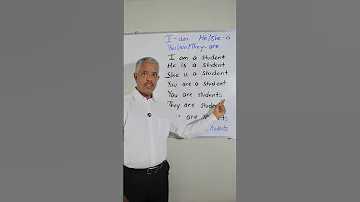 I-am He/she-is
You/we/They-are
I am a student
He is a student
She is a student
You are a student
You are students
They are students
are students
students